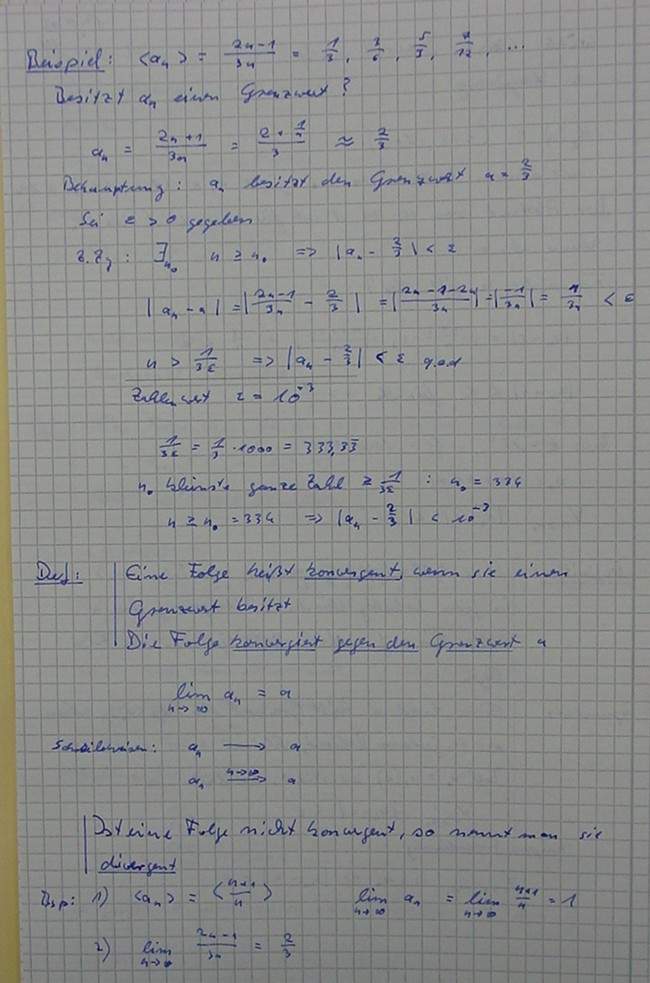 Beispiel: <aₙ> = (2n-1)/3n = 1/3, 3/6, 5/9, 7/12, ...
Besitzt aₙ einen Grenzwert?
aₙ = (2n+1)/3n = (2 + 1/n)/3 ≈ 2/3
Behauptung: aₙ besitzt den Grenzwert a = 2/3
Sei ε > 0 gegeben
z.Zg: ∃ₙ₀ n ≥ n₀ => |aₙ - 2/3| < ε
|aₙ - a| = |(2n-1)/3n - 2/3| = |(2n-1-2n)/3n| = |-1/3n| = 1/3n < ε
n > 1/3ε => |aₙ - 2/3| < ε q.e.d
Zahlenwert ε = 10⁻³
1/3ε = 1/3 · 1000 = 333,33
n₀ kleinste ganze Zahl ≥ 1/3ε : n₀ = 334
n ≥ n₀ = 334 => |aₙ - 2/3| < 10⁻³
Def: Eine Folge heißt konvergent, wenn sie einen
Grenzwert besitzt
Die Folge konvergiert gegen den Grenzwert a
lim n→∞ aₙ = a
Schreibweisen: aₙ → a
aₙ n→∞ → a
Ist eine Folge nicht konvergent, so nennt man sie
divergent
Bsp: 1) <aₙ> = <(n+1)/n> lim n→∞ aₙ = lim n→∞ (n+1)/n = 1
2) lim n→∞ (2n-1)/3n = 2/3